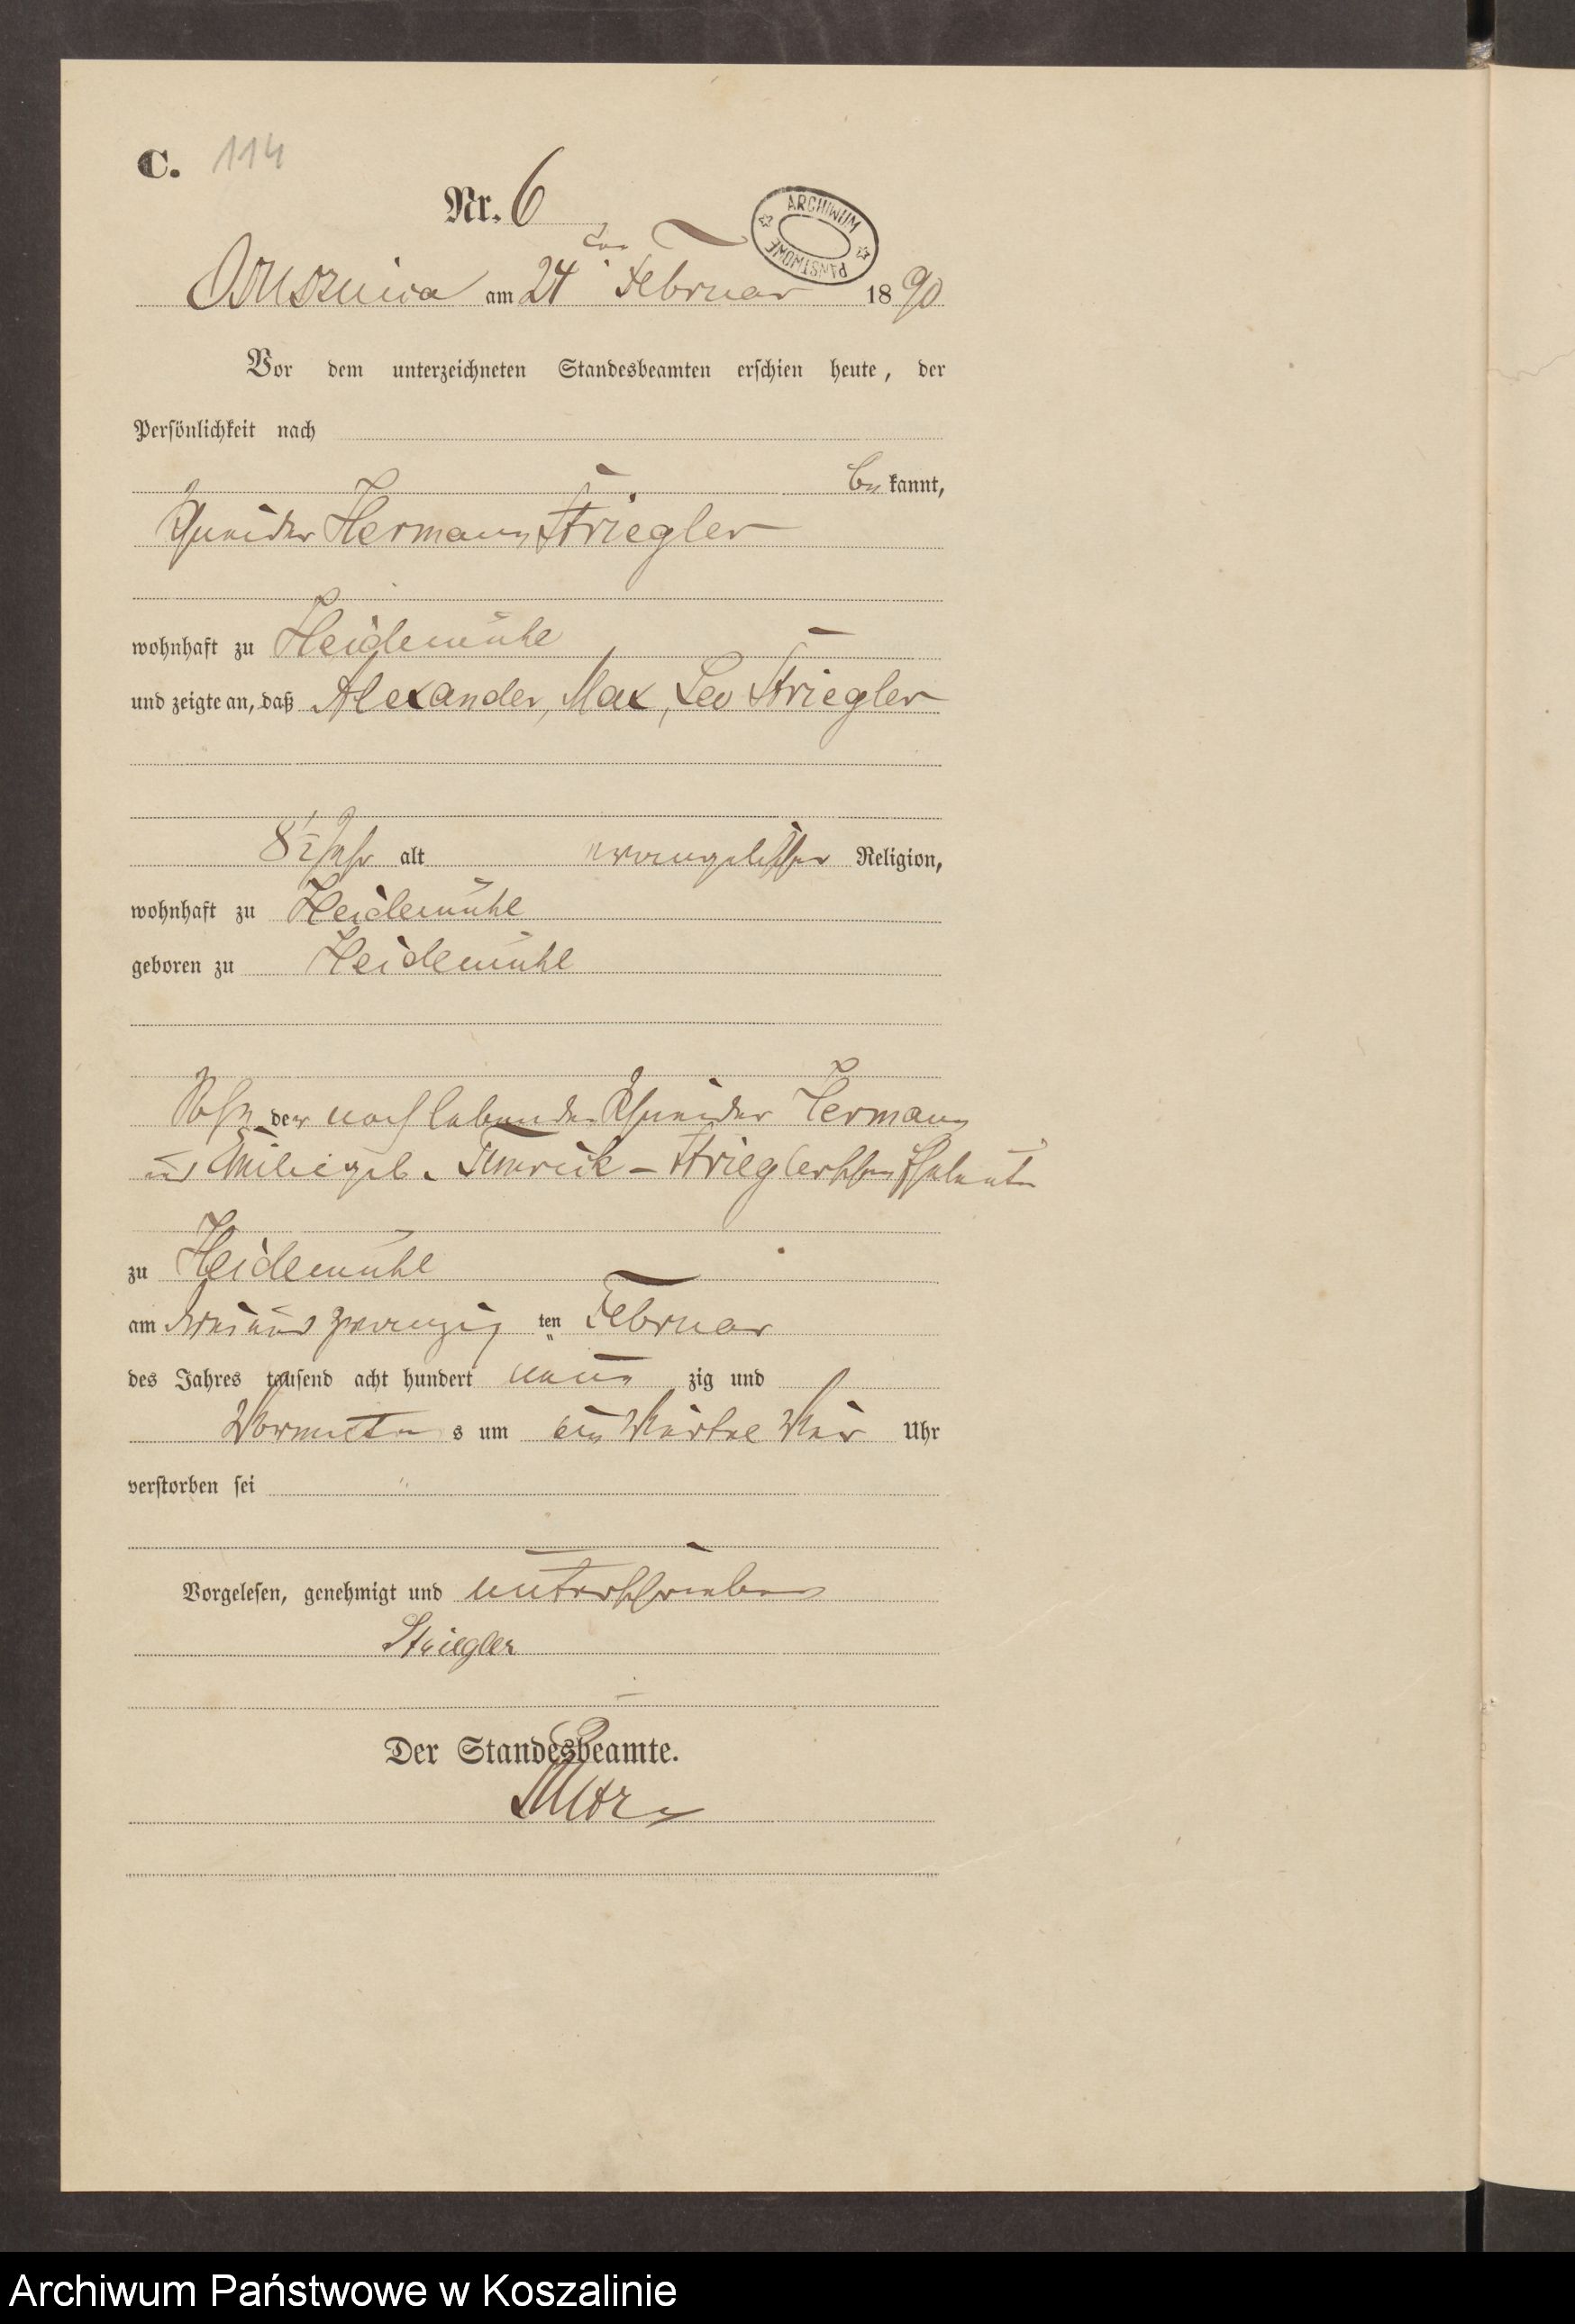 C. 114
Nr. 6
ARCHIWUM PAŃSTWOWE
am 24ten Februar 1890
Vor dem unterzeichneten Standesbeamten erschien heute, der
Persönlichkeit nach
bekannt,
Schneider Hermann Striegler
wohnhaft zu Heidemühl
und zeigte an, daß Alexander, Max, Leo Striegler
8½ Jahr alt evangelischer Religion,
wohnhaft zu Heidemühl
geboren zu Heidemühl
Sohn der noch lebenden Schneider Hermann
und Emilie geb. Striegler'schen Eheleute
zu Heidemühl
am drei und zwanzig ten Februar
des Jahres tausend acht hundert neun zig und
Vormittags um ein Viertel Vier Uhr
verstorben sei
Vorgelesen, genehmigt und unterschrieben
Striegler
Der Standesbeamte.
Archiwum Państwowe w Koszalinie